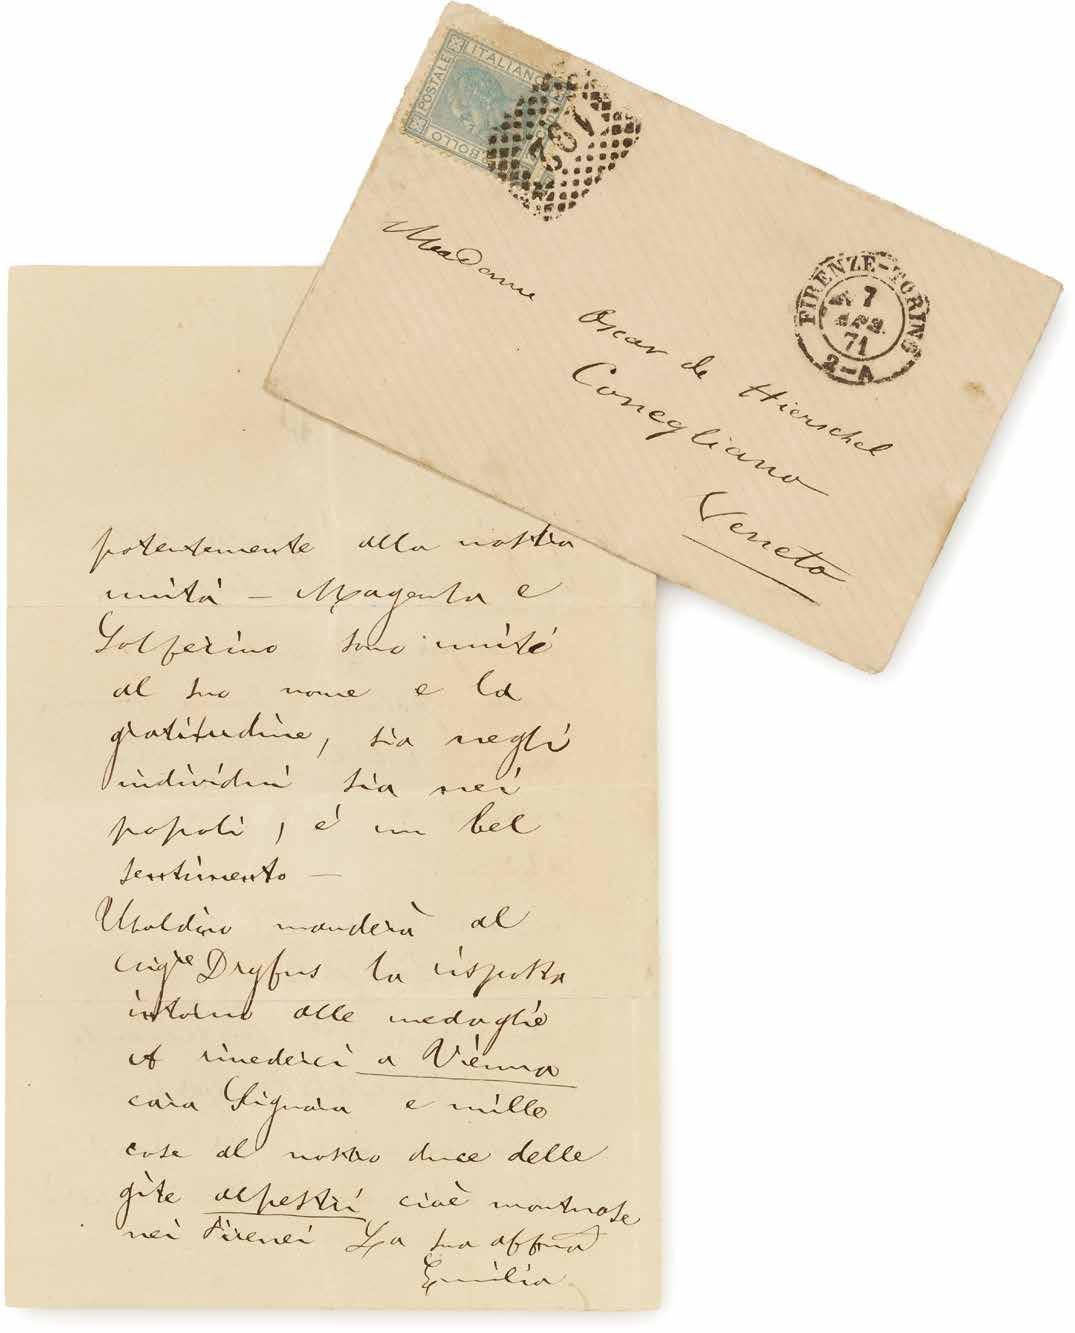 BOLLO POSTALE ITALIANO
FIRENZE-TORINO
7
71
2-A
Madame
Oscar de Hierschel
Conegliano
Veneto
potentemente alla nostra
unità - Magenta e
Solferino sono unite
al suo nome e la
gratitudine, sia negli
individui sia nei
popoli, è un bel
sentimento -
Ubaldino manderà al
Sigre Dryfus la risposta
intorno alle medaglie
A rivederci a Vienna
cara Signora e mille
cose al nostro duce delle
gite alpestri cioè montuose
nei Pirenei La sua affma
Emilia